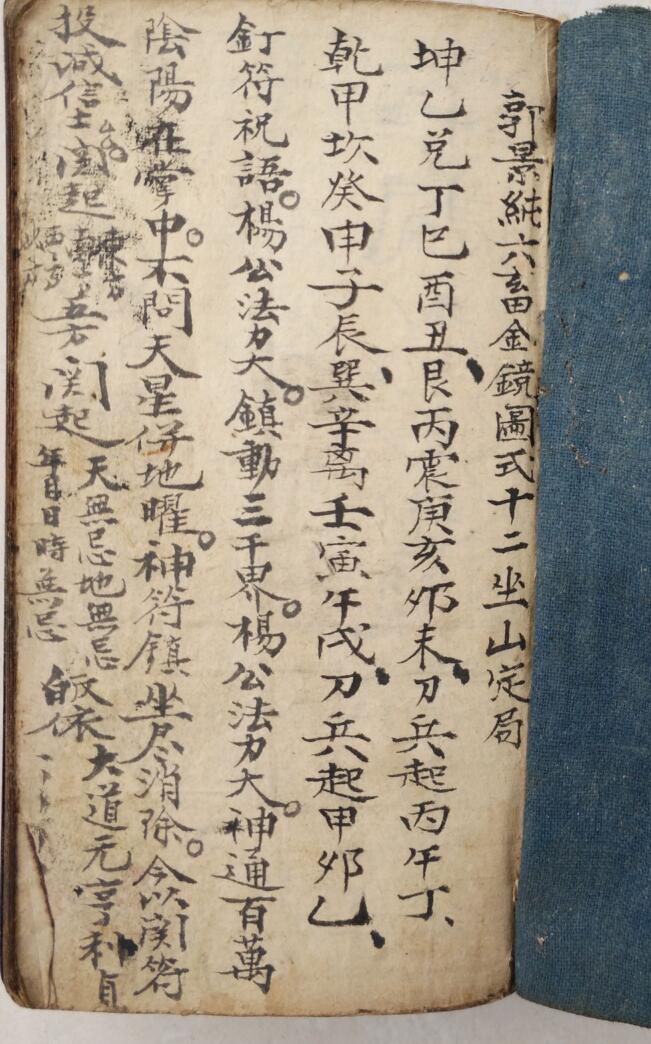 郭景純六畜金鏡圖式十二坐山定局
坤乙兌丁巳酉丑、艮丙震庚亥夘未、刀兵起丙午丁、
乾甲坎癸申子辰、巽辛离壬寅午戌、刀兵起甲夘乙、
釘符祝語。楊公法力大。鎮動三千界。楊公法力大。神通百萬
陰陽在掌中。不問天星併地曜。神符鎮坐尽消除。今以関符
投減信士厶厶関起
東方
西方
五方関起
天無忌地無忌
年月日時無忌
皈依
大道元亨利貞